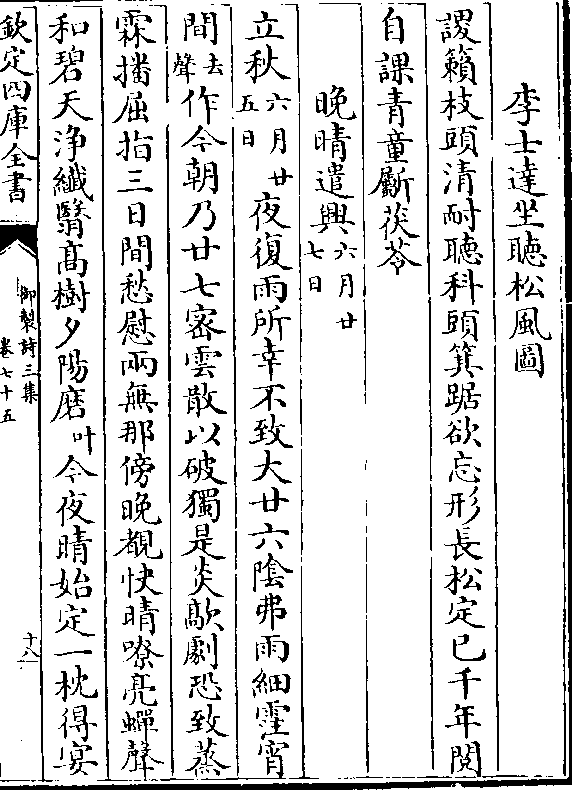 李士達坐聽松風圖
謖籟枝頭清耐聽科頭箕踞欲忘形長松定已千年閱
自課青童斸茯苓
晚晴遣興六月廿七日
立秋六月廿五日夜復雨所幸不致大廿六陰弗雨細霔宵
間去聲作今朝乃廿七密雲散以破獨是炎歊劇恐致蒸
霖播屈指三日間愁慰兩無那傍晚覩快晴嘹亮蟬聲
和碧天浄纖翳髙樹夕陽磨叶今夜晴始定一枕得宴
欽定四庫全書
御製詩三集
卷七十五
十八